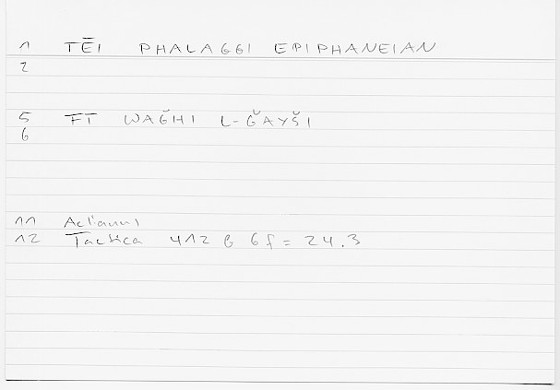 1 TĒI PHALAGGI EPIPHANEIAN
2
5 FT WAĞHI L-ĞAYŠI
6
11 Aelianus
12 Tactica 412 B 6 f = 24.3